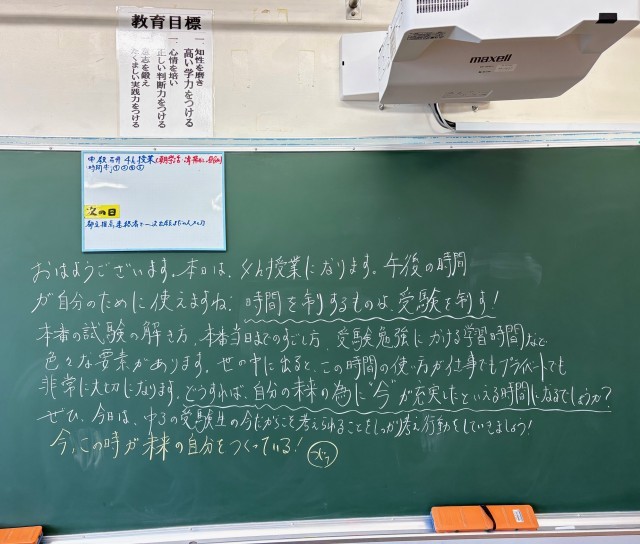 教育目標
一、知性を磨き
高い学力をつける
一、心情を培い
正しい判断力をつける
一、意志を鍛え
たくましい実践力をつける
maxell
中教研 4h授業
時間割 ①②③④
次の日
おはようございます。本日は、4h授業になります。午後の時間
が自分のために使えますね。時間を制するものは、受験を制す!
本番の試験の解き方、本番当日までのすごし方、受験勉強にかける学習時間など
色々な要素があります。世の中に出ると、この時間の使い方が仕事でもプライベートでも
非常に大切になります。どうすれば、自分の未来の為に"今"が充実したといえる時間になるでしょうか?
ぜひ、今日は、中3の受験生の今だからこそ考えられることをしっかり考え行動をしていきましょう!
今、この時が未来の自分をつくっている!